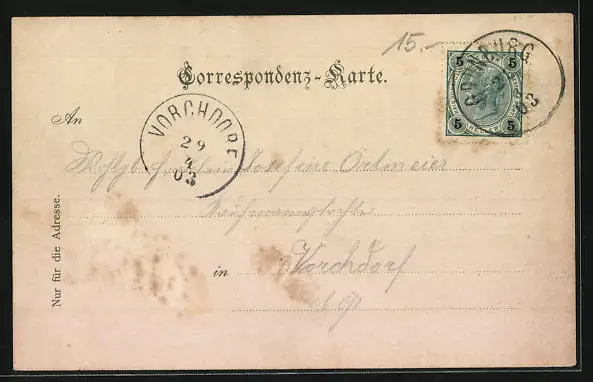 15.-
5 5
5 5
HELLER
03
Correspondenz-Karte.
An
VORCHDORF
29
4
03
Josefine Ortmeier
Kaufmannstochter
Nur für die Adresse.
in Vorchdorf